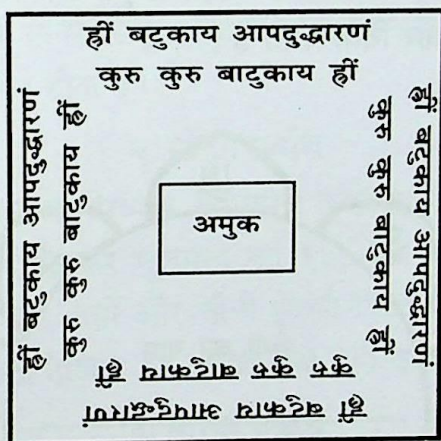 ह्रीं बटुकाय आपदुद्धारणं
कुरु कुरु बाटुकाय ह्रीं
ह्रीं बटुकाय आपदुद्धारणं
कुरु कुरु बाटुकाय ह्रीं
ह्रीं बटुकाय आपदुद्धारणं
कुरु कुरु बाटुकाय ह्रीं
ह्रीं बटुकाय आपदुद्धारणं
कुरु कुरु बाटुकाय ह्रीं
अमुक